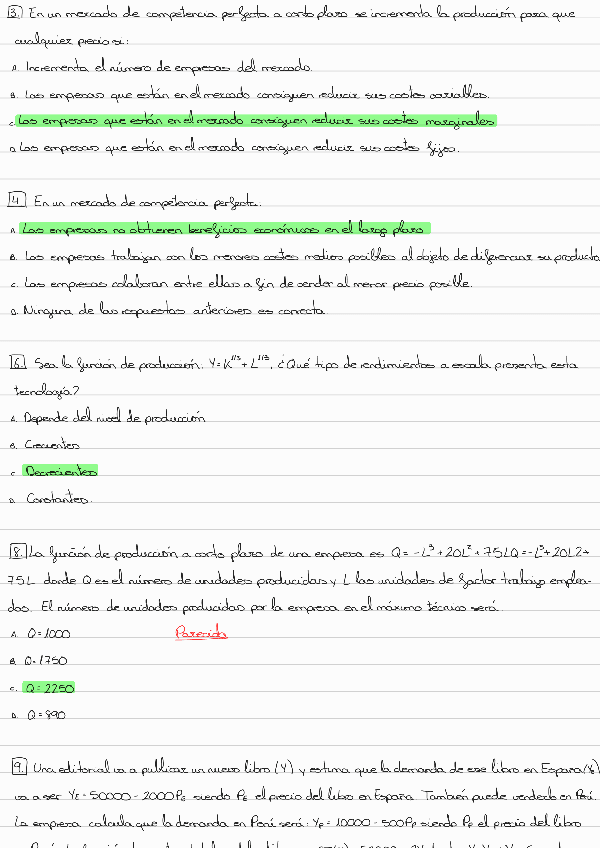 3. En un mercado de competencia perfecta a corto plazo se incrementa la producción para que
cualquier precio si:
A. Incrementa el número de empresas del mercado.
B. Las empresas que están en el mercado consiguen reducir sus costes variables.
C. Las empresas que están en el mercado consiguen reducir sus costes marginales
D. Las empresas que están en el mercado consiguen reducir sus costes fijos.
4. En un mercado de competencia perfecta.
A. Las empresas no obtienen beneficios económicos en el largo plazo
B. Las empresas trabajan con los menores costes medios posibles al objeto de diferenciar su producto
C. Las empresas colaboran entre ellas a fin de vender al menor precio posible.
D. Ninguna de las respuestas anteriores es correcta.
6. Sea la función de producción: Y=K^1/3 + L^1/3, ¿Qué tipo de rendimientos a escala presenta esta
tecnología?
A. Depende del nivel de producción
B. Crecientes
C. Decrecientes
D. Constantes.
8. La función de producción a corto plazo de una empresa es Q = -L³ + 20L² + 75LQ = -L³ + 20L2 +
75L donde Q es el número de unidades producidas y L las unidades de factor trabajo emplea-
das. El número de unidades producidas por la empresa en el máximo técnico será.
A. Q = 1000 Parecida
B. Q = 1750
C. Q = 2250
D. Q = 890
9. Una editorial va a publicar un nuevo libro (Y) y estima que la demanda de ese libro en España (YE)
va a ser YE = 50000 - 2000PE siendo PE el precio del libro en España. También puede venderlo en Perú.
La empresa calcula que la demanda en Perú será: YP = 10000 - 500PP siendo PP el precio del libro